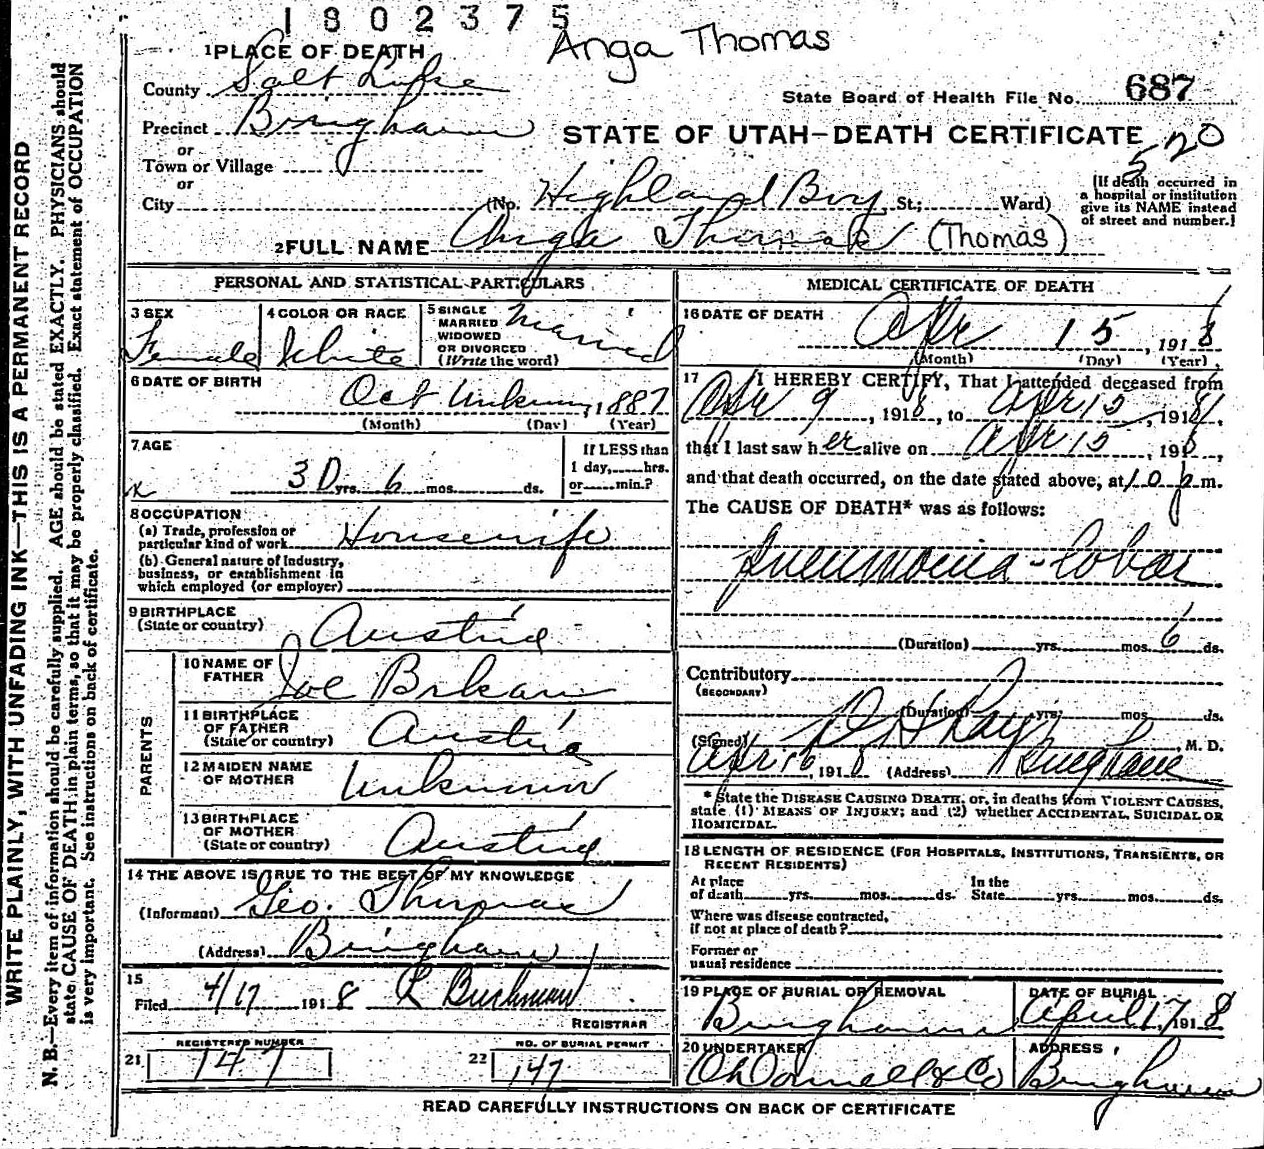 1802375
Anga Thomas
1 PLACE OF DEATH
County Salt Lake
State Board of Health File No. 687
Precinct Bingham
STATE OF UTAH—DEATH CERTIFICATE
520
or
Town or Village
or
City (No. Highland Boy St; Ward)
(If death occurred in
a hospital or institution
give its NAME instead
of street and number.)
2 FULL NAME Anga Thomas (Thomas)
PERSONAL AND STATISTICAL PARTICULARS
3 SEX
Female
4 COLOR OR RACE
White
5 SINGLE
MARRIED
WIDOWED
OR DIVORCED
(Write the word)
Married
6 DATE OF BIRTH
Oct Unknown, 1887
(Month) (Day) (Year)
7 AGE
30 yrs. 6 mos. ds.
If LESS than
1 day, hrs.
or min.?
8 OCCUPATION
(a) Trade, profession or
particular kind of work Housewife
(b) General nature of Industry,
business, or establishment in
which employed (or employer)
9 BIRTHPLACE
(State or country) Austria
PARENTS
10 NAME OF
FATHER Joe
11 BIRTHPLACE
OF FATHER
(State or country) Austria
12 MAIDEN NAME
OF MOTHER Unknown
13 BIRTHPLACE
OF MOTHER
(State or country) Austria
14 THE ABOVE IS TRUE TO THE BEST OF MY KNOWLEDGE
(Informant) Geo. Thomas
(Address) Bingham
15
Filed 4/17 1918 R Bushman
REGISTRAR
21 REGISTERED NUMBER
147
22 NO. OF BURIAL PERMIT
147
MEDICAL CERTIFICATE OF DEATH
16 DATE OF DEATH
Apr 15, 1918
(Month) (Day) (Year)
17 I HEREBY CERTIFY, That I attended deceased from
Apr 9, 1918, to Apr 15, 1918,
that I last saw her alive on Apr 15, 1918,
and that death occurred, on the date stated above, at 10 p m.
The CAUSE OF DEATH* was as follows:
Pneumonia - Lobar
(Duration) yrs. mos. 6 ds.
Contributory
(SECONDARY)
(Duration) yrs. mos. ds.
(Signed) M. D.
Apr 16, 1918 (Address) Bingham
* State the DISEASE CAUSING DEATH, or, in deaths from VIOLENT CAUSES,
state (1) MEANS OF INJURY; and (2) whether ACCIDENTAL, SUICIDAL OR
HOMICIDAL.
18 LENGTH OF RESIDENCE (FOR HOSPITALS, INSTITUTIONS, TRANSIENTS, OR
RECENT RESIDENTS)
At place
of death yrs. mos. ds.
In the
State yrs. mos. ds.
Where was disease contracted,
if not at place of death?
Former or
usual residence
19 PLACE OF BURIAL OR REMOVAL
Bingham
DATE OF BURIAL
April 17, 1918
20 UNDERTAKER
O'Donnell & Co
ADDRESS
Bingham
READ CAREFULLY INSTRUCTIONS ON BACK OF CERTIFICATE
WRITE PLAINLY, WITH UNFADING INK—THIS IS A PERMANENT RECORD
N. B.—Every item of information should be carefully supplied. AGE should be stated EXACTLY. PHYSICIANS should
state CAUSE OF DEATH in plain terms, so that it may be properly classified. Exact statement of OCCUPATION
is very important. See instructions on back of certificate.